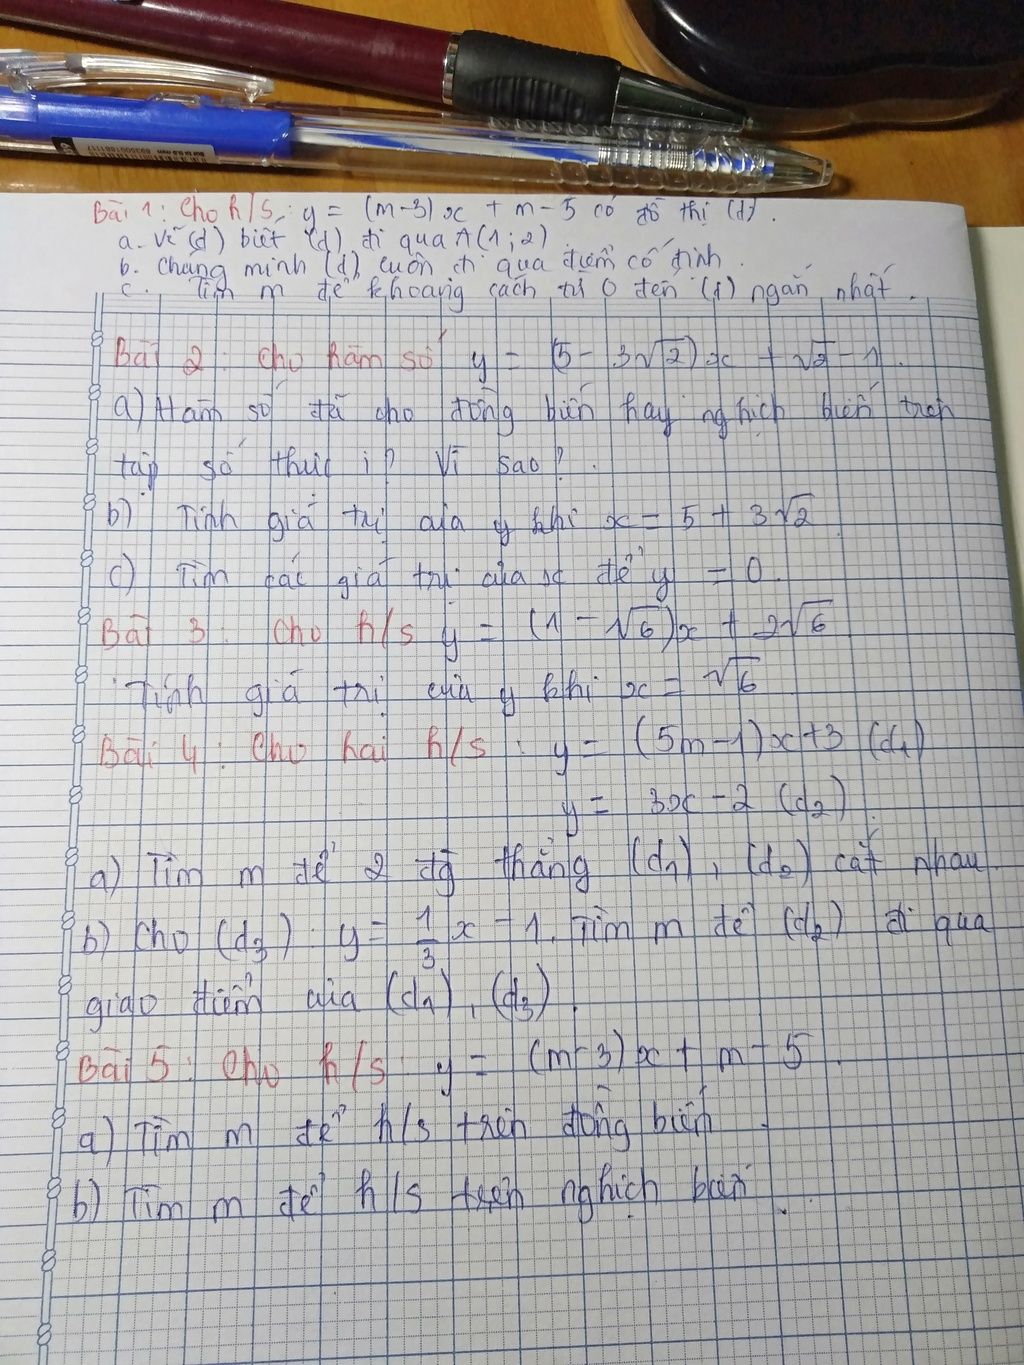 Bài 1: Cho h/s: y = (m-3)x + m-5 có đồ thị (d).
a. Vẽ (d) biết (d) đi qua A(1;2)
b. Chứng minh (d) luôn đi qua điểm cố định.
c. Tìm m để khoảng cách từ O đến (d) ngắn nhất.
Bài 2: Cho hàm số y = (5-3√2)x + √2-1.
a) Hàm số đã cho đồng biến hay nghịch biến trên
tập số thực i? Vì sao?
b) Tính giá trị của y khi x = 5 + 3√2
c) Tìm các giá trị của x để y = 0.
Bài 3: Cho h/s y = (1-√6)x + 2√6
Tính giá trị của y khi x = √6
Bài 4: Cho hai h/s: y = (5m-1)x+3 (d1)
y = 3x-2 (d2)
a) Tìm m để 2 đg thẳng (d1), (d2) cắt nhau
b) Cho (d3): y = 1/3 x - 1. Tìm m để (d2) đi qua
giao điểm của (d1), (d3).
Bài 5: Cho h/s y = (m-3)x + m-5.
a) Tìm m để h/s trên đồng biến.
b) Tìm m để h/s trên nghịch biến.